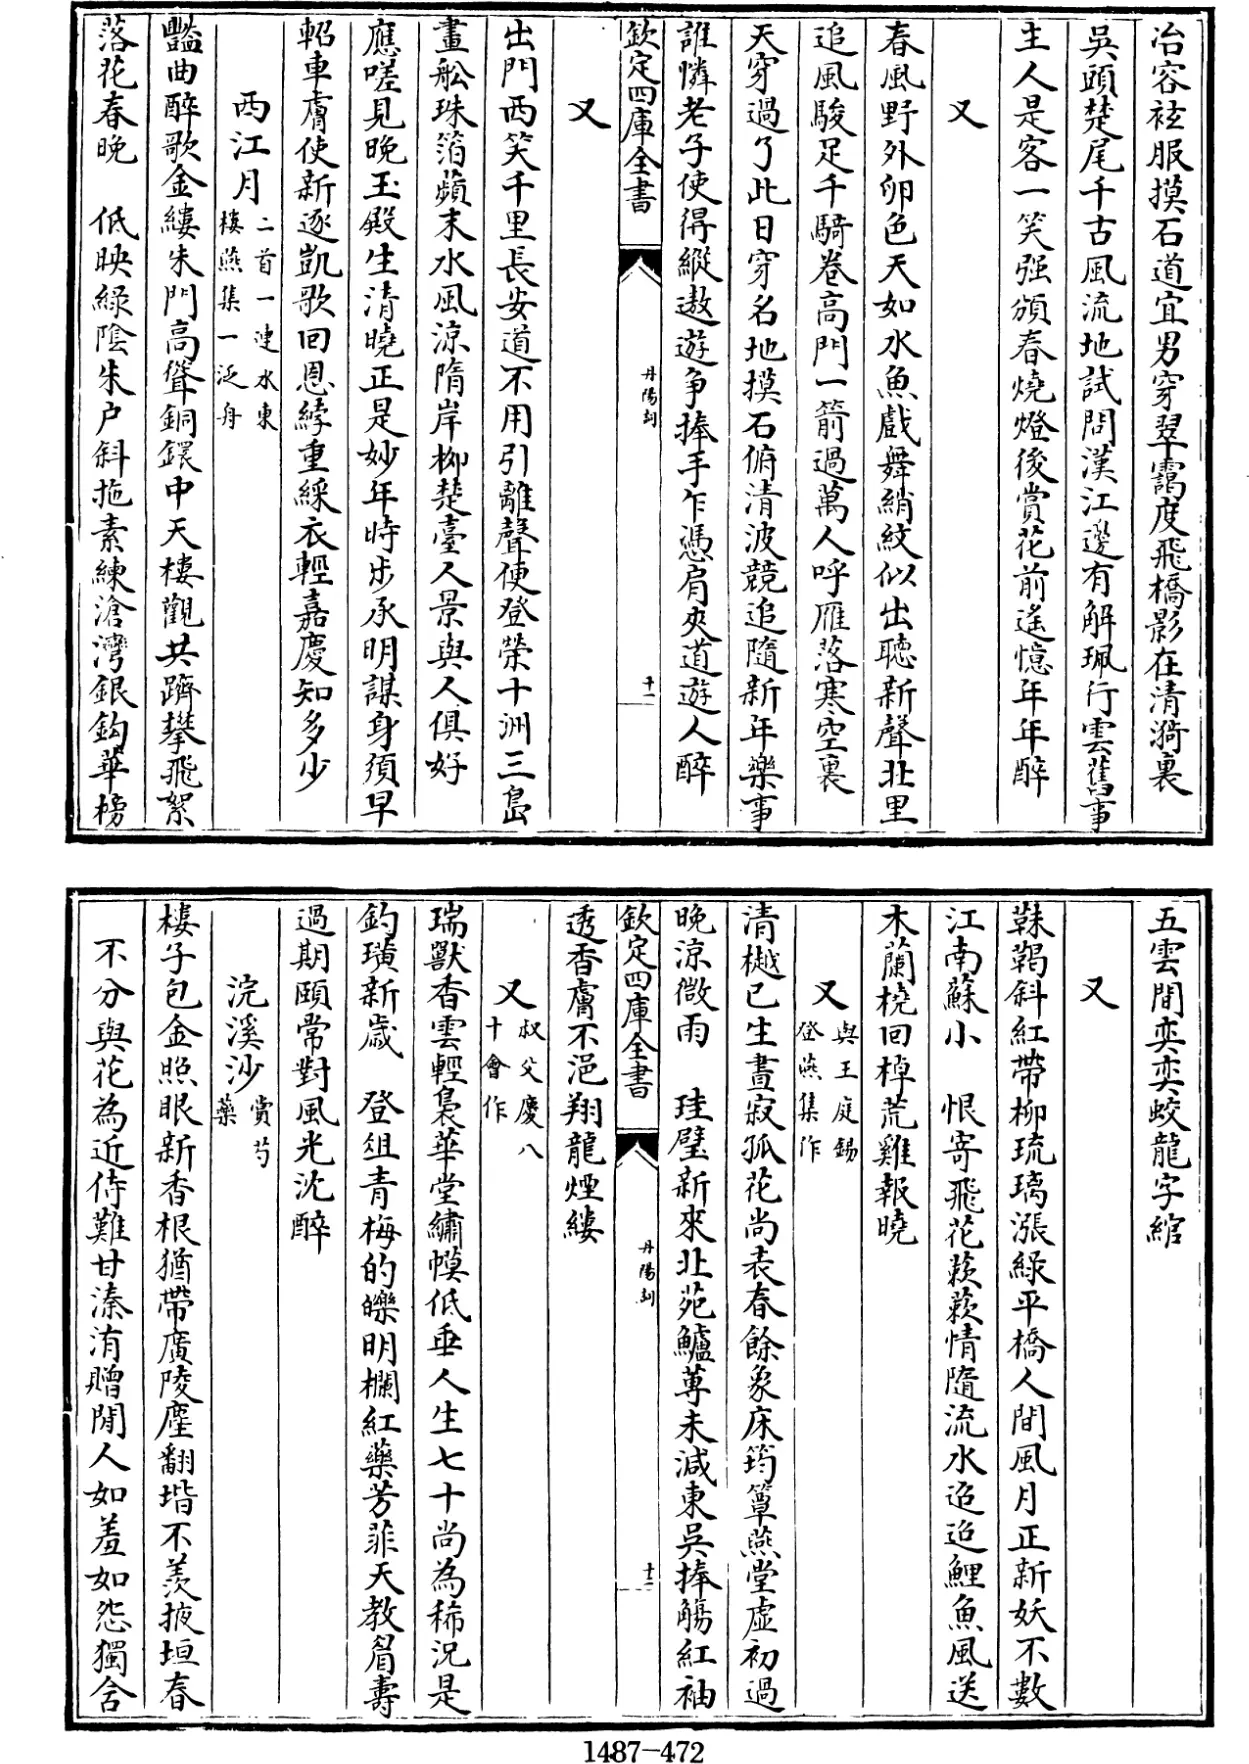 冶容袨服摸石道宜男穿翠靄度飛橋影在清漪裏
吳頭楚尾千古風流地試問漢江邊有解珮行雲舊事
主人是客一笑强頻春燒燈後賞花前遙憶年年醉
又
春風野外卵色天如水魚戲舞綃紋似出聽新聲北里
追風駿足千騎卷高門一箭過萬人呼雁落寒空裏
天穿過了此日穿名地摸石俯清波競追隨新年樂事
誰憐老子使得縱遨遊争捧手乍憑肩夾道遊人醉
欽定四庫全書
丹陽詞
十一
又
出門西笑千里長安道不用引離聲便登榮十洲三島
畫舩珠箔蘋末水風涼隋岸柳楚臺人景與人俱好
應嗟見晚玉殿生清曉正是妙年時步承明謀身須早
軺車膚使新逐凱歌回恩綍重綵衣輕嘉慶知多少
西江月二首一漣水東
樓燕集一泛舟
豔曲醉歌金縷朱門高聳銅鐶中天樓觀共躋攀飛絮
落花春晚　低映綠陰朱户斜拖素練滄灣銀鈎華榜
五雲間奕奕蛟龍字綰
又
靺鞨斜紅帶柳琉璃漲綠平橋人間風月正新妖不數
江南蘇小　恨寄飛花蔌蔌情隨流水迢迢鯉魚風送
木蘭橈回棹荒雞報曉
又與王庭錫
登燕集作
清樾已生晝寂孤花尚表春餘象床筠簟燕堂虛初過
晚涼微雨　珪璧新來北苑鱸蓴未減東吳捧觴紅袖
欽定四庫全書
丹陽詞
十二
透香膚不浥翔龍煙縷
又叔父慶八
十會作
瑞獸香雲輕裊華堂繡幙低垂人生七十尚為稀況是
釣璜新歲　登俎青梅的皪明欄紅藥芳菲天教眉壽
過期頤常對風光沈醉
浣溪沙賞芍
藥
樓子包金照眼新香根猶帶廣陵塵翻堦不羨掖垣春
不分與花為近侍難甘溱洧贈閒人如羞如怨獨含
1487-472